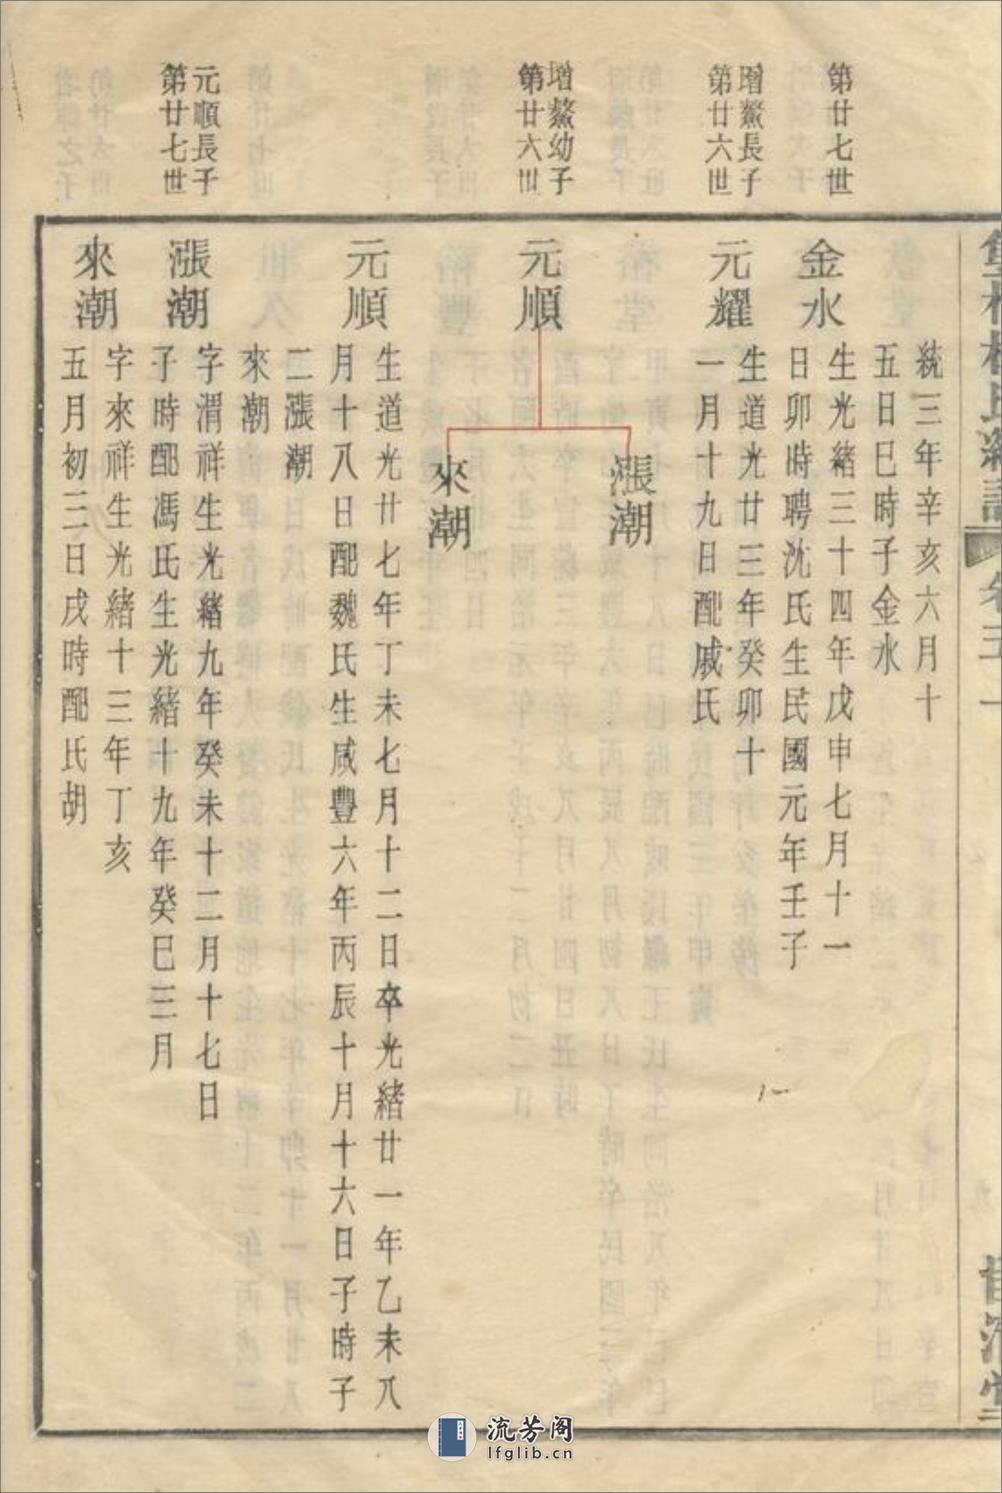 統三年辛亥六月十
五日巳時子金水
第廿七世
金水
生光緒三十四年戊申七月十一
日卯時聘沈氏生民國元年壬子
增鰲長子
第廿六世
元耀
生道光廿三年癸卯十
一月十九日配戚氏
增鰲幼子
第廿六世
元順
漲潮
來潮
元順
生道光廿七年丁未七月十二日卒光緒廿一年乙未八
月十八日配魏氏生咸豐六年丙辰十月十六日子時子
二漲潮
來潮
元順長子
第廿七世
漲潮
字渭祥生光緒九年癸未十二月十七日
子時配馮氏生光緒十九年癸巳三月
來潮
字來祥生光緒十三年丁亥
五月初三日戌時配氏胡
流芳阁
lfglib.cn